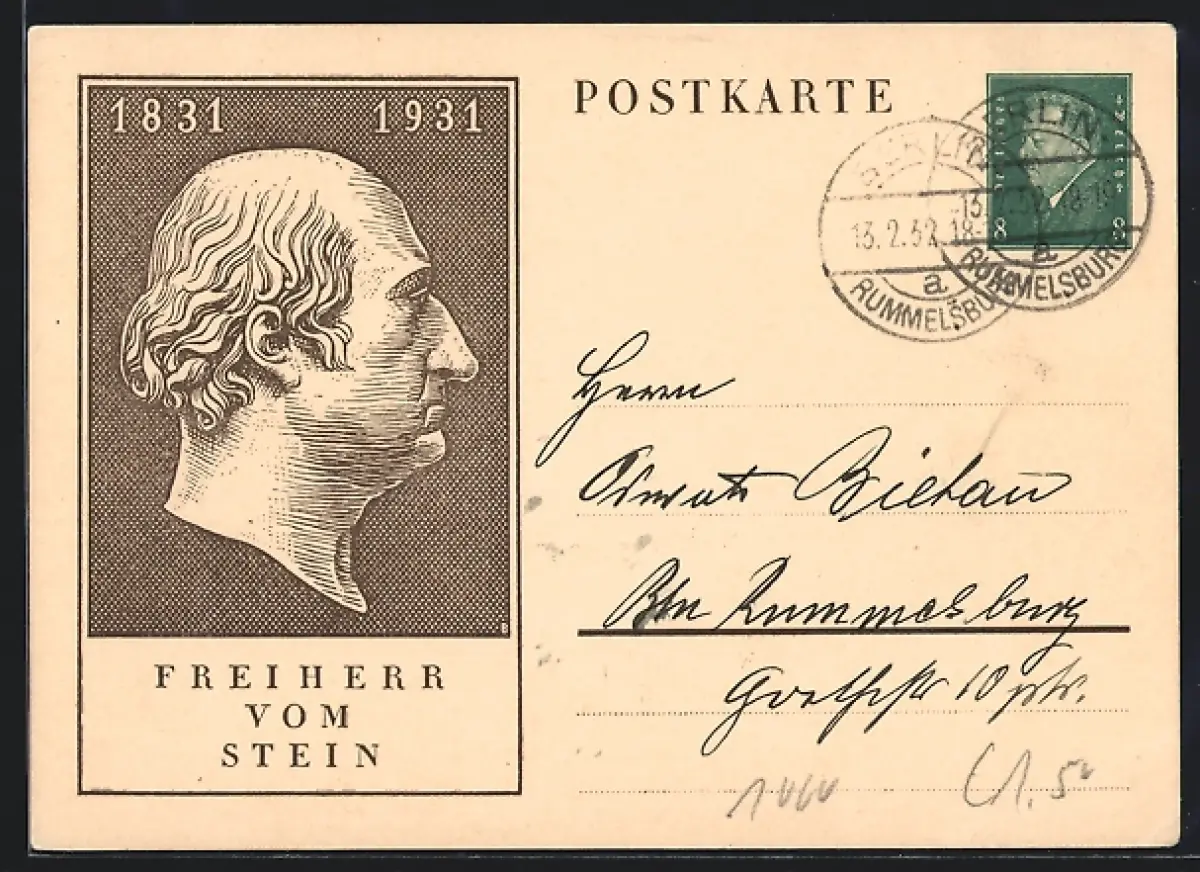 1831 1931
FREIHERR
VOM
STEIN
POSTKARTE
8 8
BERLIN-
13.2.32 18-
a
RUMMELSBURG
BERLIN-
13.2.32 18-19
a
RUMMELSBURG
Herrn
Bietau
Bln Rummelsburg
Goethestr 10 ptr.